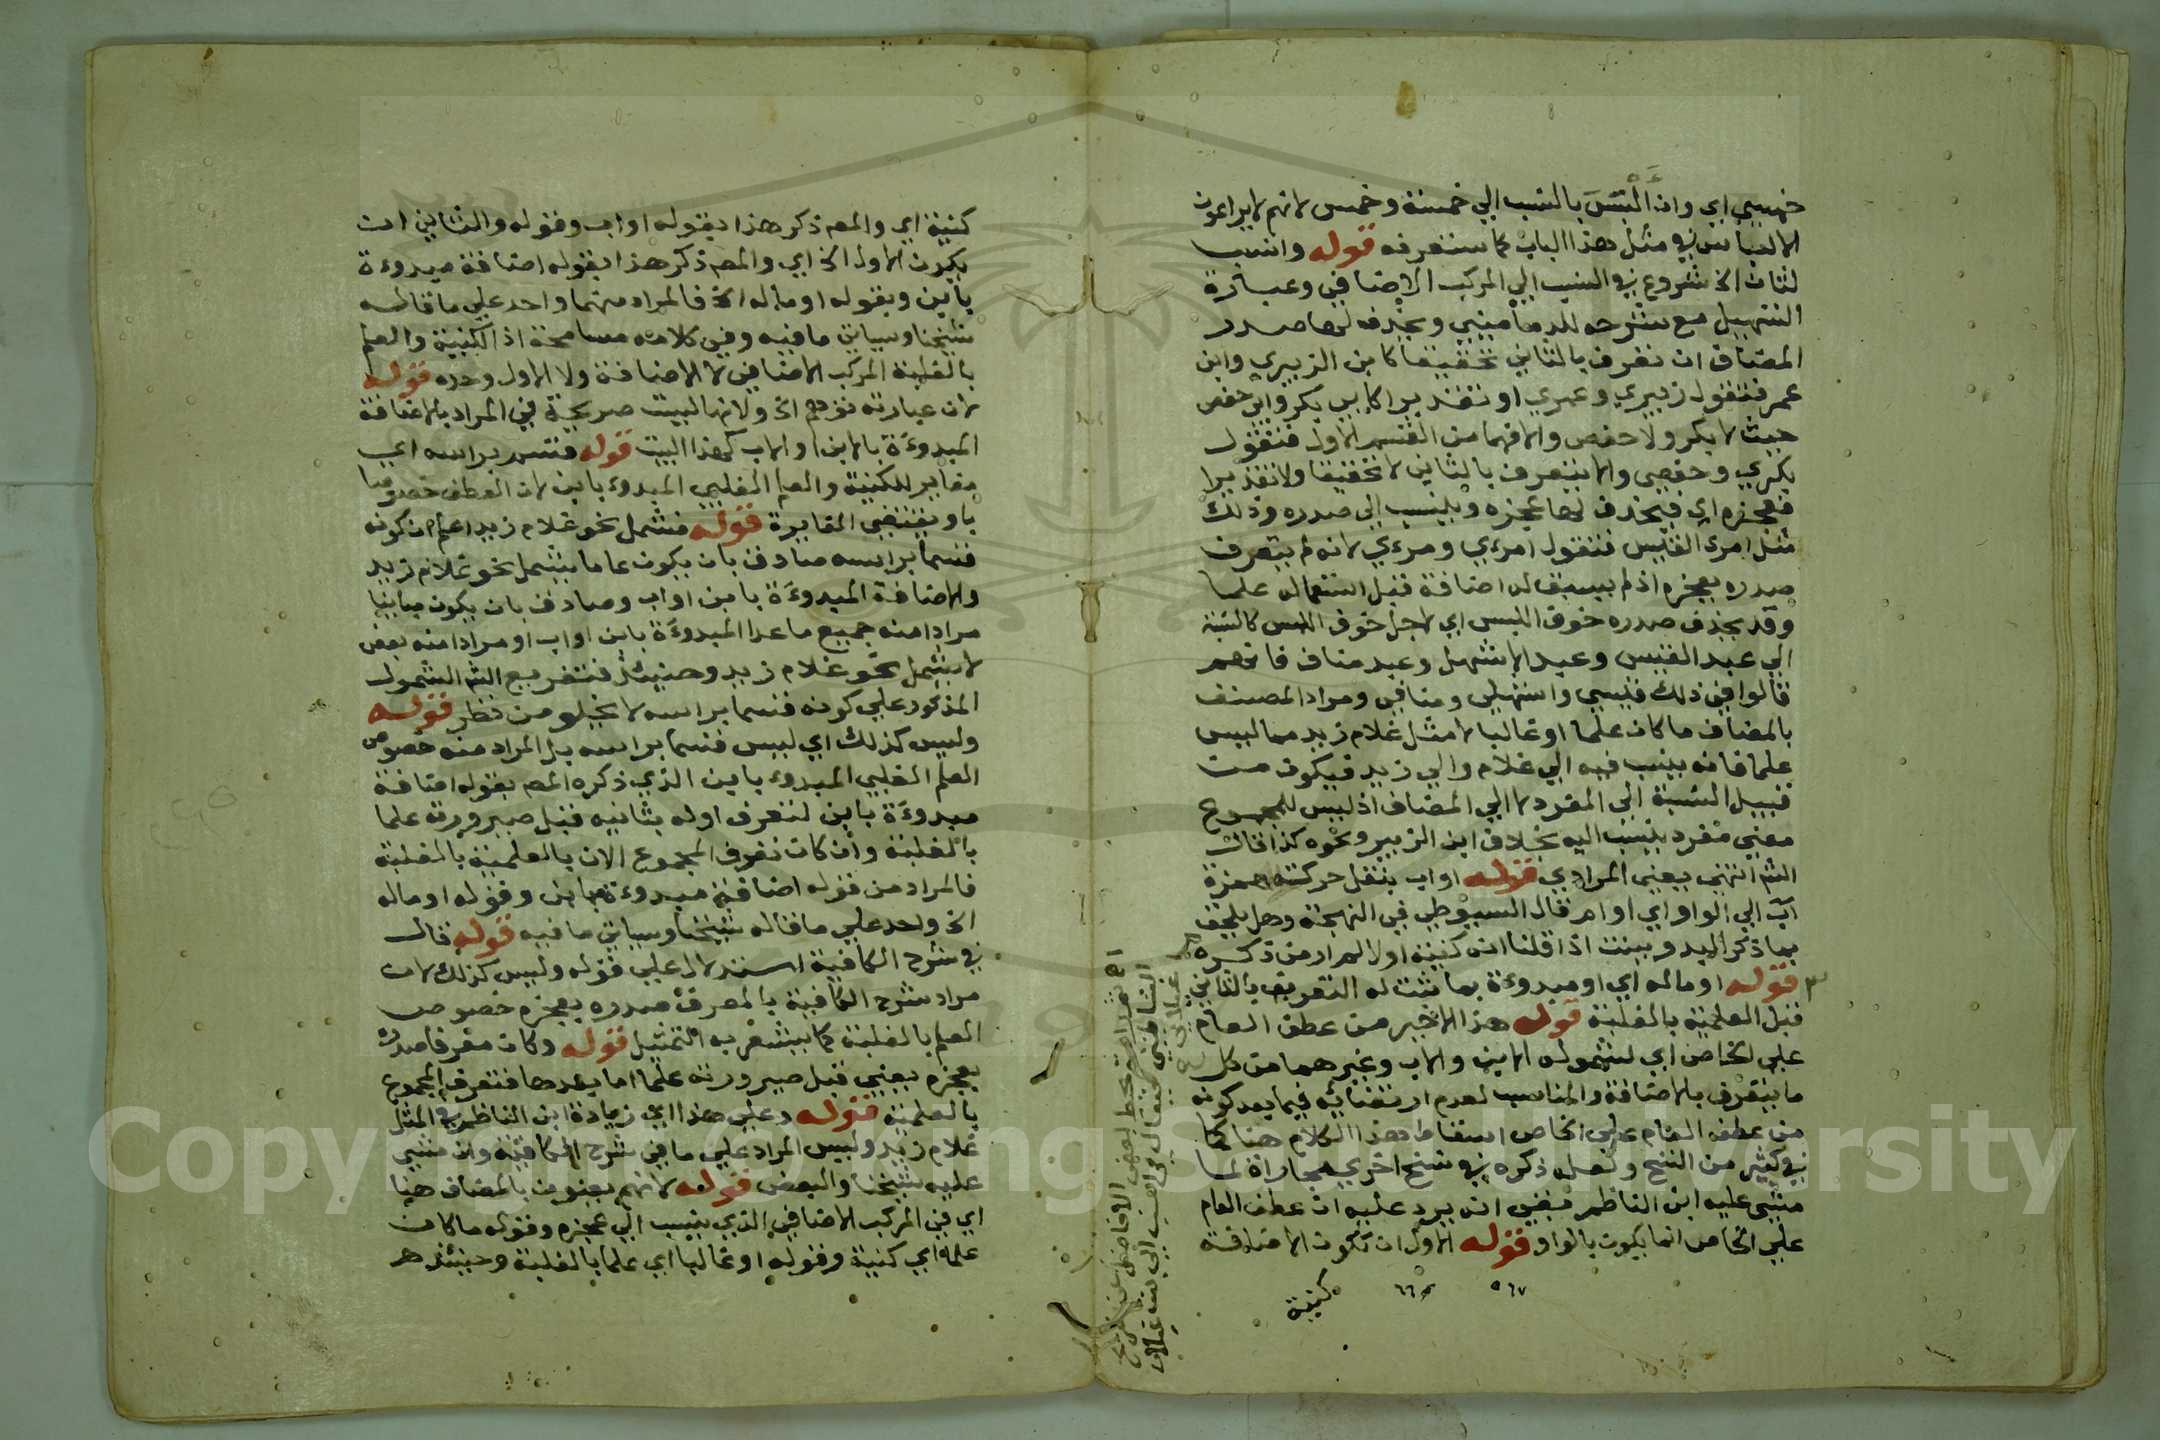 خمسي اي وان الْتبَسَ بالنسب الي خمسة وخمس لانهم لا يراعون
الالتباس في مثل هذا الباب كما ستعرفه قوله وانسب
لثان الخ شروع في النسب الي المركب الاضافي وعبارة
التسهيل مع شرحه للدماميني ويحذف لها صدر
المضاف ان تعرف بالثاني تحقيقا كابن الزبيري وابن
عمر فتقول زبيري وعمري او تقديرا كابي بكر وابي حفص
حيث لا بكر ولا حفص والا فهما من القسم الاول فتقول
بكري وحفصي والا يتعرف بالثاني لا تحقيقا ولا تقديرا
فعجزه اي فيحذف لها عجزه وينسب الي صدره وذلك
مثل امرئ القيس فتقول امرءي ومرءي لانه لم يتعرف
صدره بعجزه اذ لم يسبق له اضافة قبل استعماله علما
وقد يحذف صدره خوف اللبس اي لاجل خوف اللبس كالنسبة
الي عبد القيس وعبد الاشهل وعبد مناف فانهم
قالوا في ذلك قيسي واشهلي ومنافي ومراد المصنف
بالمضاف ما كان علما او غالبا لا مثل غلام زيد مما ليس
علما فانه ينسب فيه الي غلام والي زيد فيكون من
قبيل النسبة الي المفرد لا الي المضاف اذ ليس للمجموع
معني مفرد ينسب اليه بخلاف ابن الزبير ونحوه كذا قال
الشم انتهي بمعني المرادي قوله اواب بنقل حركة همزة
اب الي الواو اي او ام قال السيوطي في النهجة وهل يلحق
بما ذكر المبدو ببنت اذا قلنا انه كنية اولا لم ار من ذكره
قوله او ماله اي او مبدوءة بما ثبت له التعريف بالثاني
قبل العلمية بالغلبة قوله هذا الاخير من عطف العام
علي الخاص اي لشموله الابن والاب وغيرهما من كل
ما يتعرف بالاضافة والمناسب لعدم ارتضائه فيما بعد كونه
من عطف العام علي الخاص اسقاط هذا الكلام هنا كما
في كثير من النسخ ولعله ذكره في نسخ اخري مجاراة لما
مشي عليه ابن الناظم فبقي انه يرد عليه ان عطف العام
علي الخاص انما يكون بالواو قوله الاول ان تكون الاضافة
كنيته
كنية اي والمم ذكر هذا بقوله اواب وقوله والثاني ان
يكون الاول الخ اي والمم ذكر هذا بقوله اضافة مبدوءة
بابن وبقوله او ماله الخ فالمراد منهما واحد علي ما قاله
شيخنا وسياتي ما فيه وفي كلامه مسامحة اذ الكنية والعلم
بالغلبة المركب الاضافي لا الاضافة ولا الاول وحده قوله
لان عبارته توهم الخ ولانها ليست صريحة في المراد بالاضافة
المبدوءة بالابن او الاب كهذا البيت قوله قسم براسه اي
مغاير للكنية والعلم الغلبي المبدوء بابن لان العطف خصوصا
باو يقتضي المغايرة قوله فشمل نحو غلام زيد اعلم ان كونه
قسما براسه صادق بان يكون عاما يشمل نحو غلام زيد
والاضافة المبدوءَة بابن اواب وصادق بان يكون مباينا
مرادا منه جميع ما عدا المبدوءَة بابن اواب او مرادا منه بعض
لا يشمل نحو غلام زيد وحينئذ فتفريع الشم الشمول
المذكور علي كونه قسما براسه لا يخلو من نظر قوله
وليس كذلك اي ليس قسما براسه بل المراد منه خصوص
العلم الغلبي المبدوء بابن الذي ذكره المم بقوله اضافة
مبدوءَة بابن لتعرف اوله بثانيه قبل صيرورته علما
بالغلبة وان كان تعرف المجموع الان بالعلمية بالغلبة
فالمراد من قوله اضافة مبدوءة بابن وقوله او ماله
الخ واحد علي ما قاله شيخنا وسياتي ما فيه قوله قال
في شرح الكافية استدلال علي قوله وليس كذلك لان
مراد شرح الكافية بالمعرف صدره بعجزه خصوص
العلم بالغلبة كما يشعر به التمثيل قوله وكان معرفا صدره
بعجزه يعني قبل صيرورته علما اما بعدها فتعرف المجموع
بالعلمية قوله وعلي هذا اي زيادة ابن الناظم في المثل
غلام زيد وليس المراد علي ما في شرح الكافية وان مشي
عليه شيخنا والبعض قوله لانهم يعنون بالمضاف هنا
اي في المركب الاضافي الذي ينسب الي عجزه وقوله ما كان
علما اي كنية وقوله او غالبا اي علما بالغلبة وحينئذ هر
Copyright © King Saud University